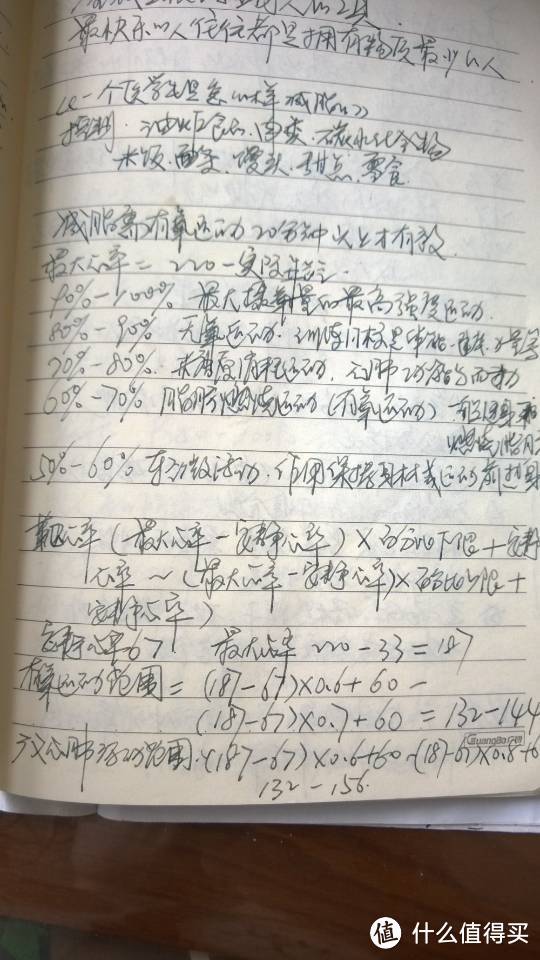 最快乐的人往往都是拥有物质最少的人
《一个医学生是怎么样减脂的》
控制.油炸食品.肉类.碳水化合物
米饭.面条.馒头.甜点.零食
减脂需有氧运动20分钟以上才有效.
最大心率=220-实际年龄.
90%-100% 最大摄氧量的最高强度运动.
80%-90% 无氧运动.训练
70%-80%. 运动.心肺功能
60%-70% 脂肪燃烧运动(有氧运动)
燃烧脂肪
50%-60% 活动.作用保持身材或运动前热身
靶心率(-最大心率-安静心率)×百分比下限+安静
心率~(最大心率-安静心率)×百分比上限+
安静心率)
安静心率67 最大心率 220-33=187
有氧运动范围=(187-67)×0.6+60-
(187-67)×0.7+60=132-144
心肺 范围.(187-67)×0.6+60-(187-67)×0.8+6
132-156.
GuangBo广博
值 什么值得买